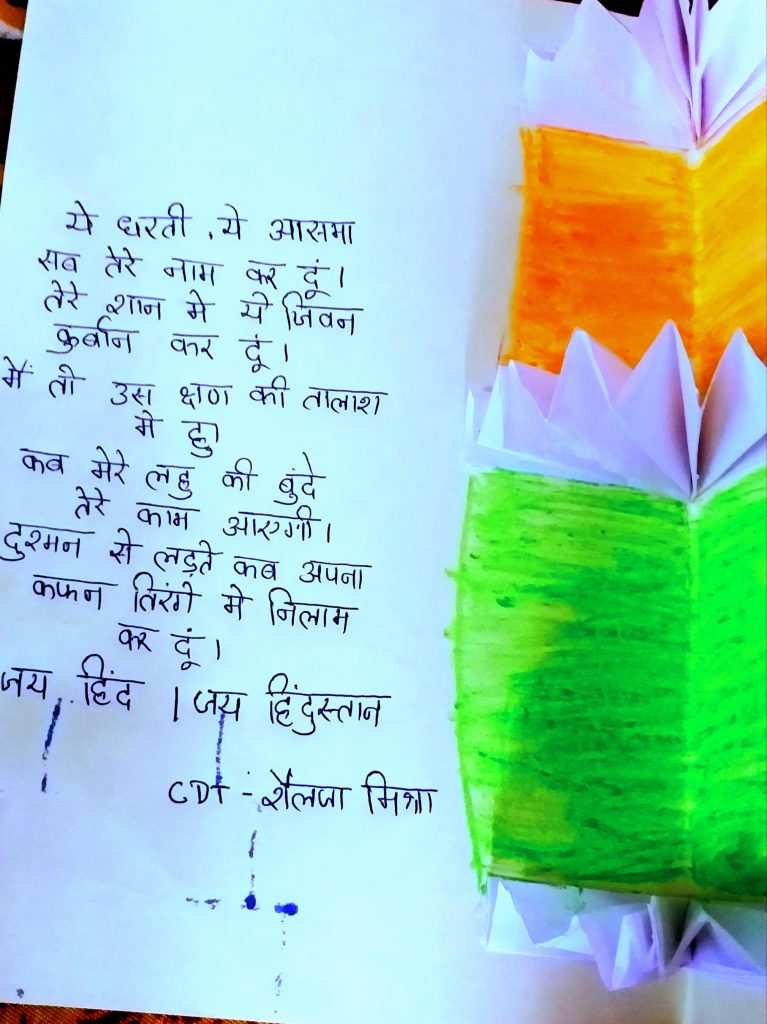 ये धरती , ये आसमा
सब तेरे नाम कर दूं।
तेरे शान मे ये जिवन
कुर्बान कर दूं।
मैं तो उस क्षण की तालाश
मे हु
कब मेरे लहु की बुंदे
तेरे काम आएगी।
दुश्मन से लड़ते कब अपना
कफन तिरंगे मे निलाम
कर दूं।
जय हिंद । जय हिंदुस्तान
CDT - शैलजा मिश्रा